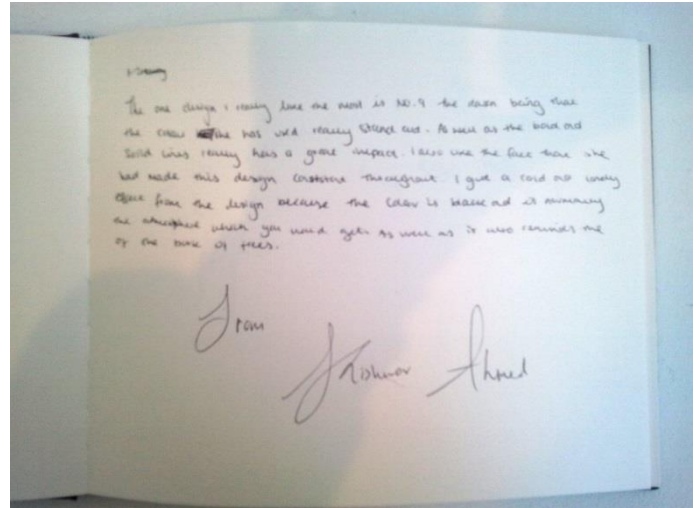 The one design I really like the most is NO.9 the reason being that
the colour she has used really stand out. As well as the bold and
solid lines really has a great impact. I also like the fact that she
had made this design consistent throughout. I get a cold and lonely
effect from the design because the color is black and is mimicking
the atmosphere which you would get. As well as it also reminds me
of the bark of trees.
From
Ahmed